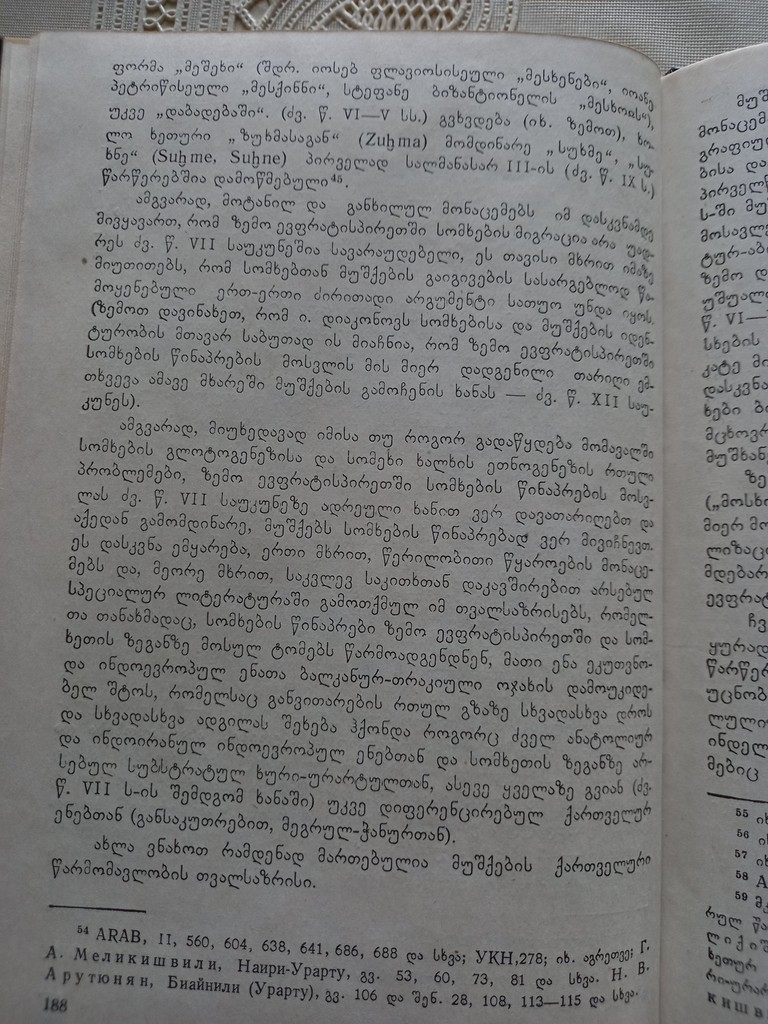 ფორმა „მეშეხი“ (შდრ. იოსებ ფლავიოსისეული „მესხენები“, იოანე
პეტრიწისეული „მესქინნი“, სტეფანე ბიზანტიონელის „მესხოის“),
უკვე „დაბადებაში“. (ძვ. წ. VI—V სს.) გვხვდება (იხ. ზემოთ), ხო-
ლო ხეთური „ზუხმასაგან“ (Zuḫma) მომდინარე „სუხმე“, „სუ-
ხნე“ (Suḫme, Suḫne) პირველად სალმანასარ III-ის (ძვ. წ. IX ს.)
წარწერებშია დამოწმებული
ამგვარად, მოტანილ და განხილულ მონაცემებს იმ დასკვნამდე
მივყავართ, რომ ზემო ევფრატისპირეთში სომხების მიგრაცია არა უად-
რეს ძვ. წ. VII საუკუნეშია სავარაუდებელი, ეს თავისი მხრით იმაზე
მიუთითებს, რომ სომხებთან მუშქების გაიგივების სასარგებლოდ წა-
მოყენებული ერთ-ერთი ძირითადი არგუმენტი სათუო უნდა იყოს.
(ზემოთ დავინახეთ, რომ ი. დიაკონოვს სომხებისა და მუშქების იდენ-
ტურობის მთავარ საბუთად ის მიაჩნია, რომ ზემო ევფრატისპირეთში
სომხების წინაპრების მოსვლის მის მიერ დადგენილი თარიღი ემ-
თხვევა ამავე მხარეში მუშქების გამოჩენის ხანას — ძვ. წ. XII საუ-
კუნეს).
ამგვარად, მიუხედავად იმისა თუ როგორ გადაწყდება მომავალში
სომხების გლოტოგენეზისა და სომეხი ხალხის ეთნოგენეზის რთული
პრობლემები, ზემო ევფრატისპირეთში სომხების წინაპრების მოსვ-
ლას ძვ. წ. VII საუკუნეზე ადრეული ხანით ვერ დავათარიღებთ და
აქედან გამომდინარე, მუშქებს სომხების წინაპრებად ვერ მივიჩნევთ.
ეს დასკვნა ემყარება, ერთი მხრით, წერილობითი წყაროების მონაცე-
მებს და, მეორე მხრით, საკვლევ საკითხთან დაკავშირებით არსებულ
სპეციალურ ლიტერატურაში გამოთქმულ იმ თვალსაზრისებს, რომელ-
თა თანახმადაც, სომხების წინაპრები ზემო ევფრატისპირეთში და სომ-
ხეთის ზეგანზე მოსულ ტომებს წარმოადგენდნენ, მათი ენა ეკუთვნო-
და ინდოევროპულ ენათა ბალკანურ-თრაკიული ოჯახის დამოუკიდე-
ბელ შტოს, რომელსაც განვითარების რთულ გზაზე სხვადასხვა დროს
და სხვადასხვა ადგილას შეხება ჰქონდა როგორც ძველ ანატოლიურ
და ინდოირანულ ინდოევროპულ ენებთან და სომხეთის ზეგანზე არ-
სებულ სუბსტრატულ ხური-ურარტულთან, ასევე ყველაზე გვიან (ძვ.
წ. VII ს-ის შემდგომ ხანაში) უკვე დიფერენცირებულ ქართველურ
ენებთან (განსაკუთრებით, მეგრულ-ჭანურთან).
ახლა ვნახოთ რამდენად მართებულია მუშქების ქართველური
წარმომავლობის თვალსაზრისი.
54 ARAB, II, 560, 604, 638, 641, 686, 688 და სხვა; УКН,278; იხ. აგრეთვე; Г.
А. Меликишвили, Наири-Урарту, გვ. 53, 60, 73, 81 და სხვა. Н. В.
Арутюнян, Биайнили (Урарту), გვ. 106 და შენ. 28, 108, 113—115 და სხვა.
188
მუშ
მონაცემ
გრაფიულ
ბისა და
პირველ
ს-ში მუ
მოსავლე
ტურ-აბი
ზემო დ
უშუალ
წ. VI—
სხების
კატე მი
დასკვნა
ხები ბი
მცხოვრ
მუშხან
ზე
(„მოსხი
მიერ მო
ლიზაცი
მდებარ
ევფრატ
ჩვ
ყურად
წარწერ
უცნობ
ლული
ინდელ
მებიც
55 იხ
56 ი
57 იხ
58 A
59 მკ
რულ წა
ლიქიშ
ხეთურ
რი-ურარ
кишв